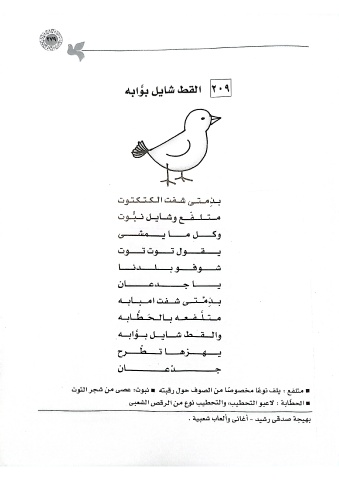 ٢٠٩ القط شايل بوَّابه
بذمتى شفت الكتكتوت
متلفع وشايل نبُّوت
وكل ما يمشى
يقول توت توت
شوفو بلدنا
يا جدعان
بذمتى شفت امبابه
متلفعه بالحطَّابه
والقط شايل بوَّابه
يهزها تطرح
جدعان
■ متلفع : يلف نوعًا مخصوصًا من الصوف حول رقبته ■ نبوت: عصى من شجر التوت
■ الحطابة : لاعبو التحطيب، والتحطيب نوع من الرقص الشعبى
بهيجة صدقى رشيد - أغانى وألعاب شعبية .